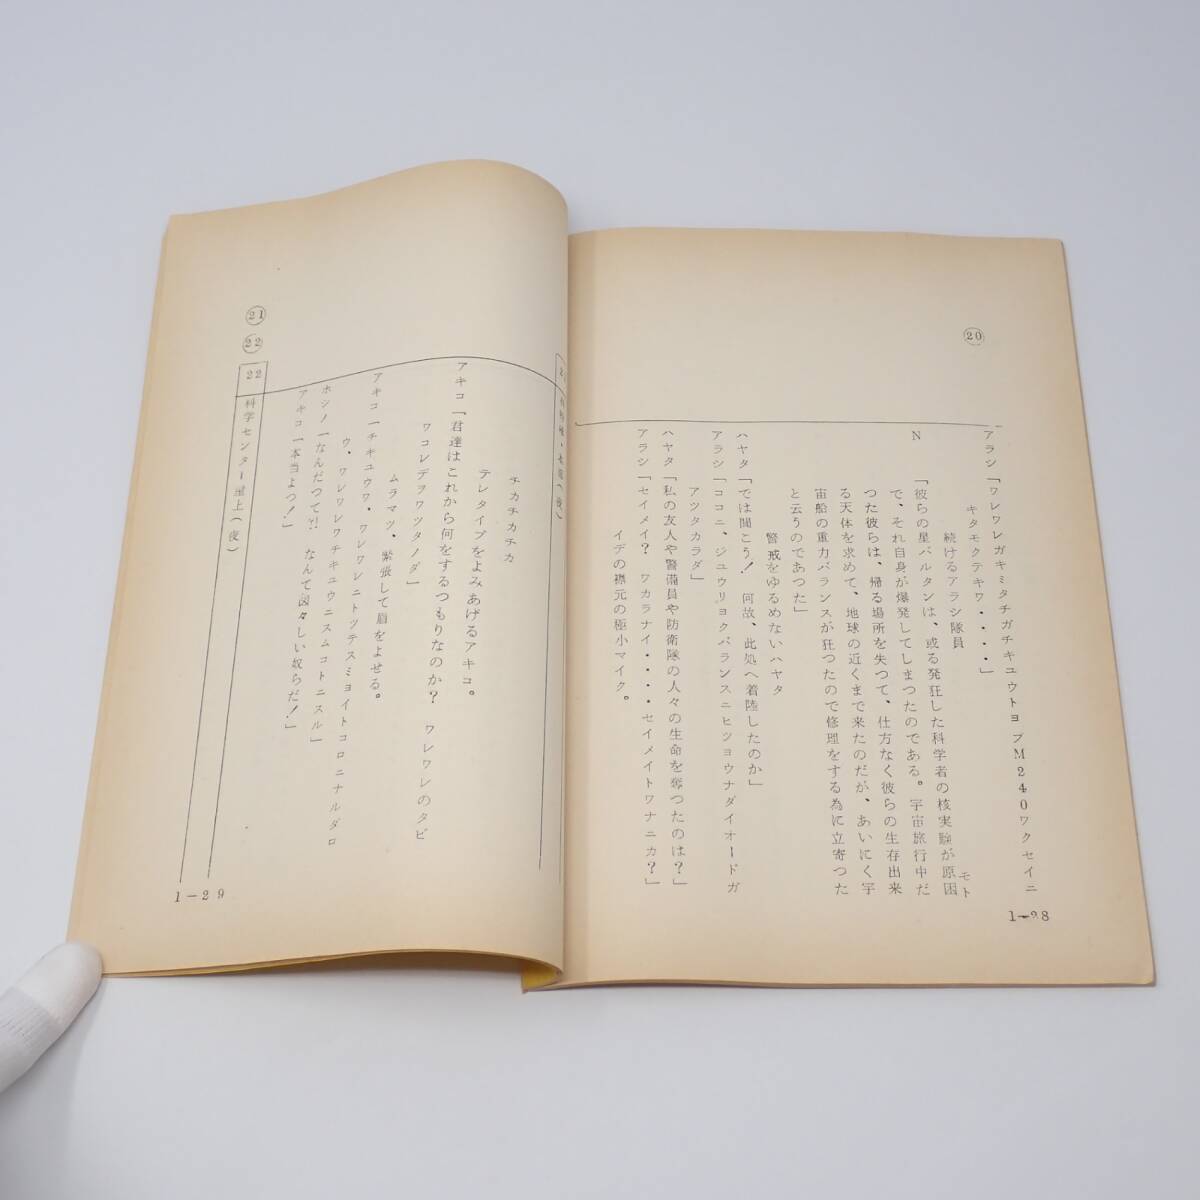 ⑳
アラシ「ワレワレガキミタチガチキユウトヨブM240ワクセイニ
キタモクテキワ・・・・」
続けるアラシ隊員
モト
N「彼らの星バルタンは、或る発狂した科学者の核実験が原因
で、それ自身が爆発してしまつたのである。宇宙旅行中だ
つた彼らは、帰る場所を失つて、仕方なく彼らの生存出来
る天体を求めて、地球の近くまで来たのだが、あいにく宇
宙船の重力バランスが狂つたので修理をする為に立寄つた
と云うのであつた」
警戒をゆるめないハヤタ
ハヤタ「では聞こう！　何故、此処へ着陸したのか」
アラシ「ココニ、ジユウリヨクバランスニヒツヨウナダイオードガ
アツタカラダ」
ハヤタ「私の友人や警備員や防衛隊の人々の生命を奪つたのは？」
アラシ「セイメイ？　ワカラナイ・・・・セイメイトワナニカ？」
イデの襟元の極小マイク。
1-28
㉑
(夜)
チカチカチカ
テレタイプをよみあげるアキコ。
アキコ「君達はこれから何をするつもりなのか？　ワレワレのタビ
ワコレデヲワツタノダ」
ムラマツ、緊張して眉をよせる。
アキコ「チキユウワ・ワレワレニトツテスミヨイトコロニナルダロ
ウ、ワレワレワチキユウニスムコトニスル」
ホシノ「なんだつて⁈　なんて図々しい奴らだ！」
アキコ「本当よつ！」
㉒
22　科学センター屋上(夜)
1-29